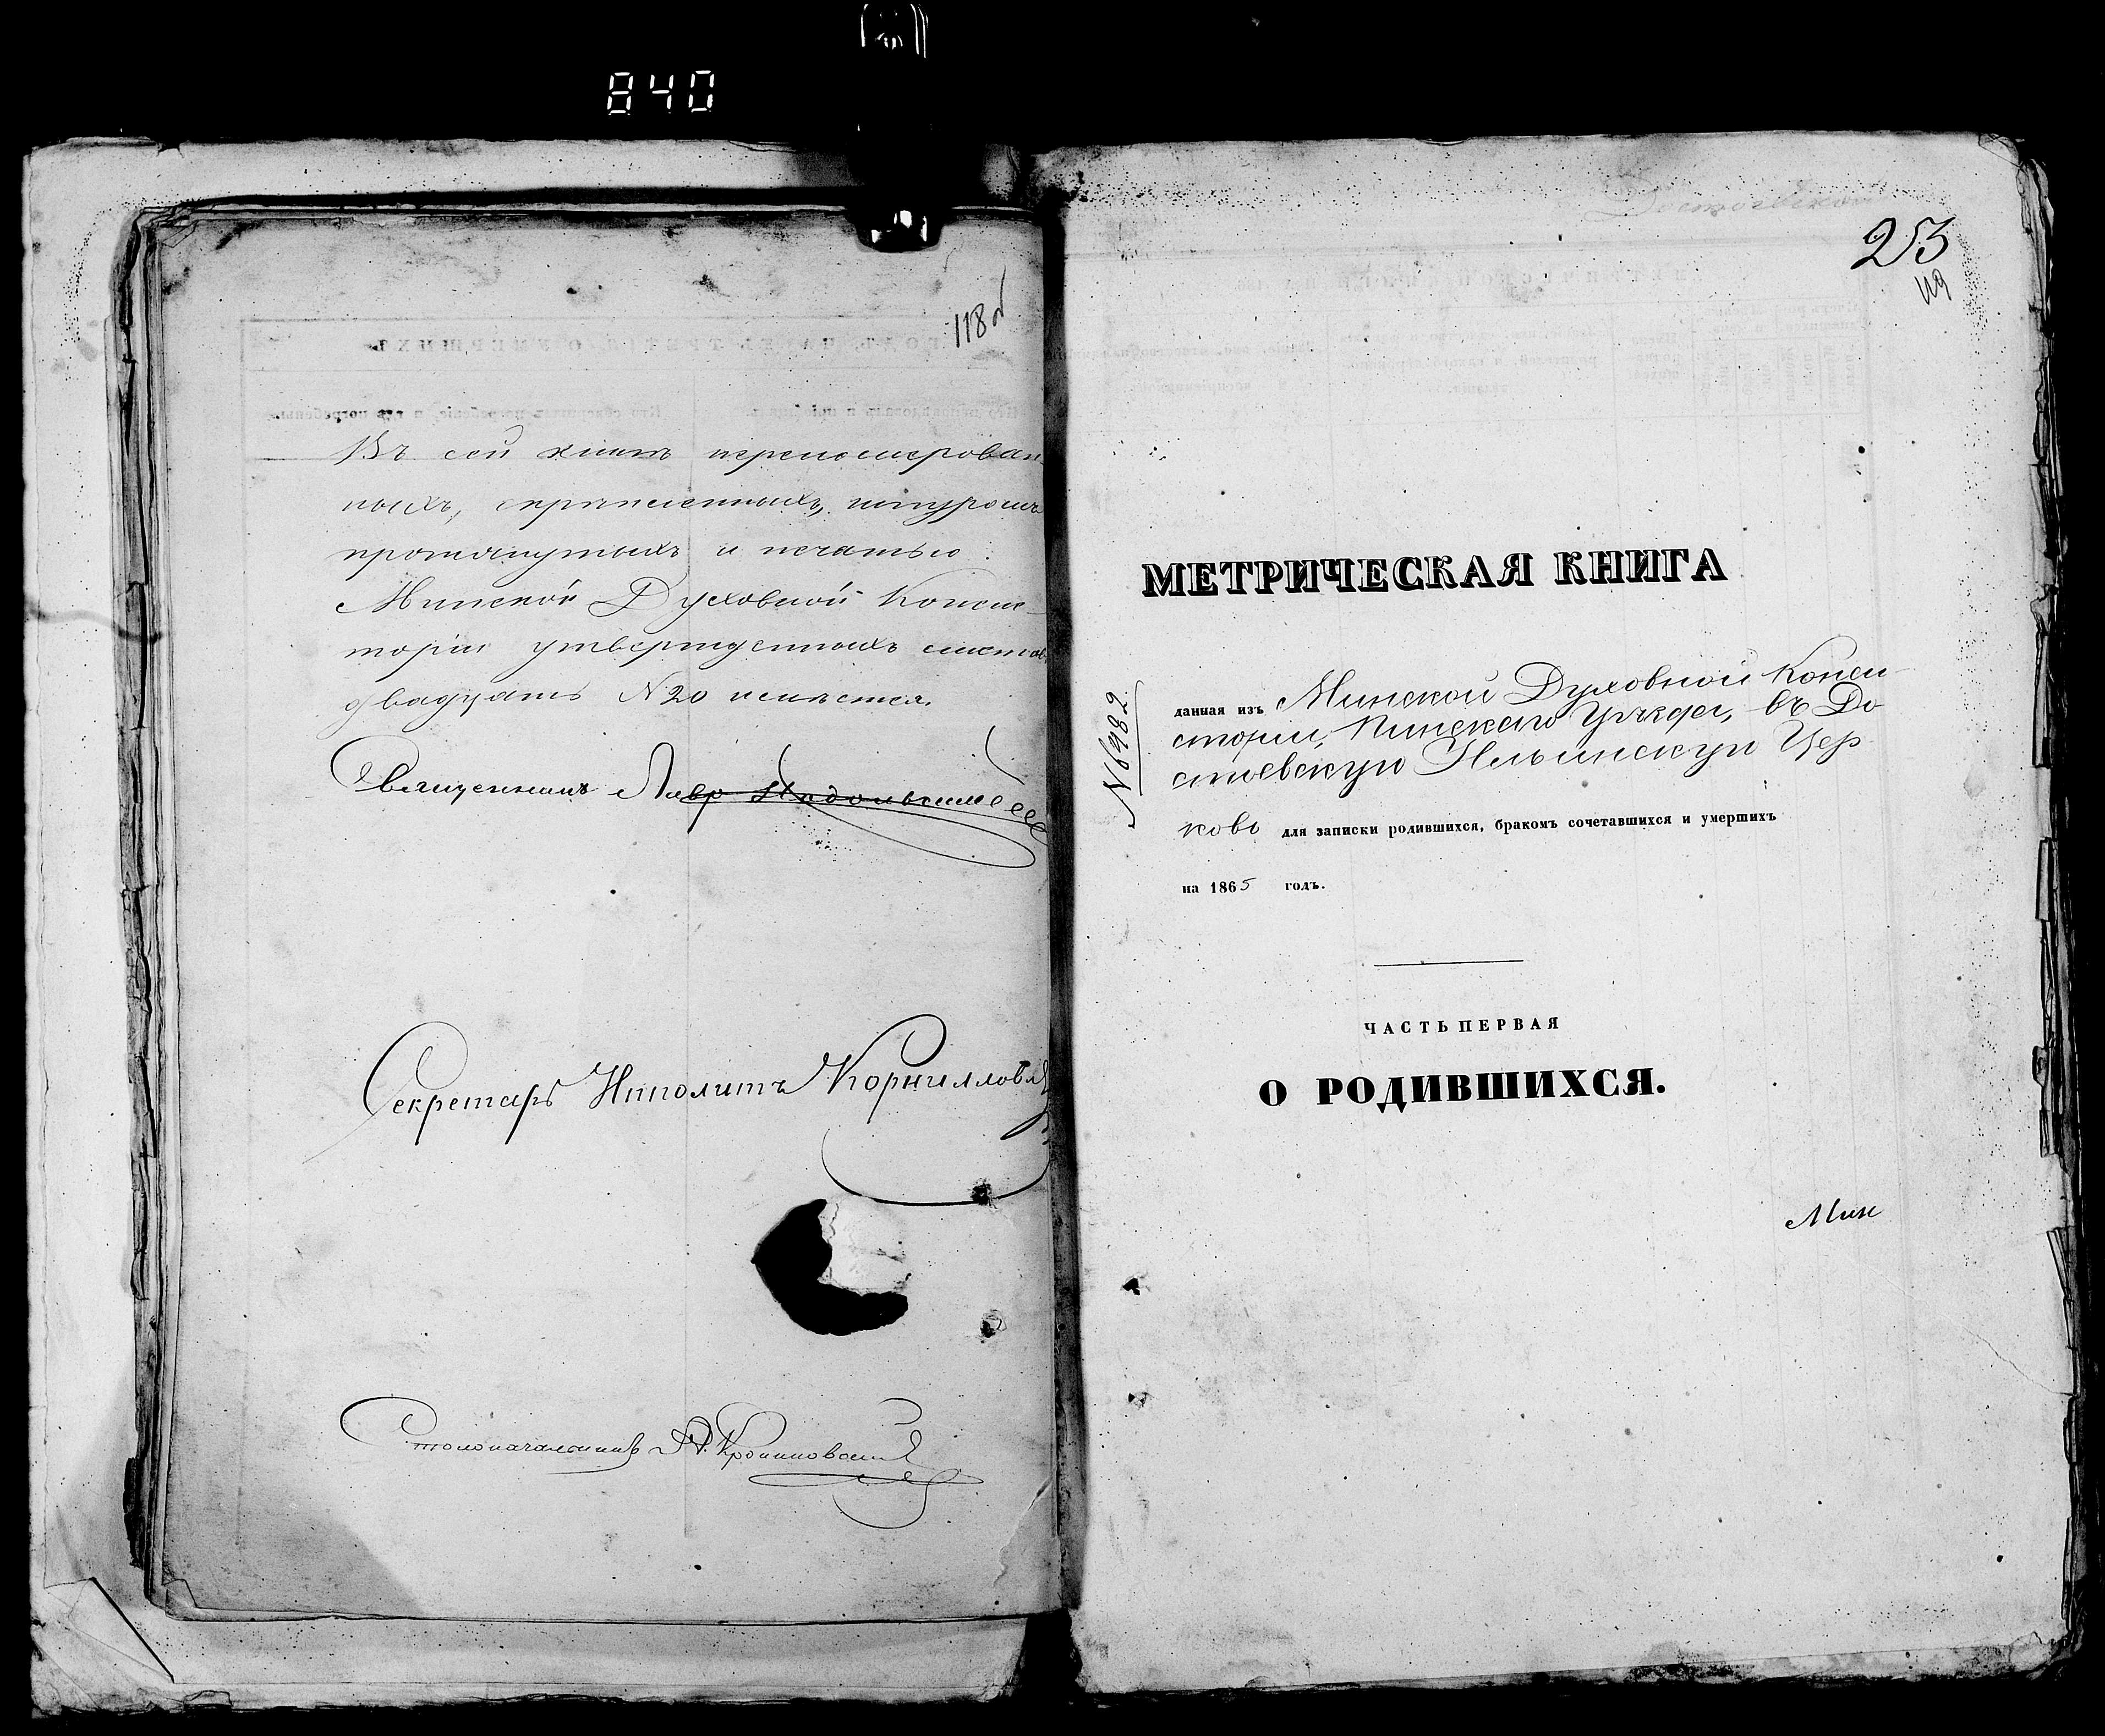 840
118 об
Въ сей книгѣ перенумерован-
ныхъ, скрѣпленныхъ, шнуромъ
протянутыхъ и печатью
Минской Духовной Консис-
торіи утвержденныхъ листовъ
двадцать N 20 имѣется.
Священникъ Лавр
Секретарь Иполитъ Корнилловъ
Столоначальникъ
23
119
МЕТРИЧЕСКАЯ КНИГА
N 6982
данная изъ Минской Духовной Конси-
сторіи, Пинскаго Уѣзда, въ До
стоевскую Ильинскую Цер
ковь для записки родившихся, бракомъ сочетавшихся и умершихъ
на 1865 годъ.
ЧАСТЬ ПЕРВАЯ
О РОДИВШИХСЯ.
Мин